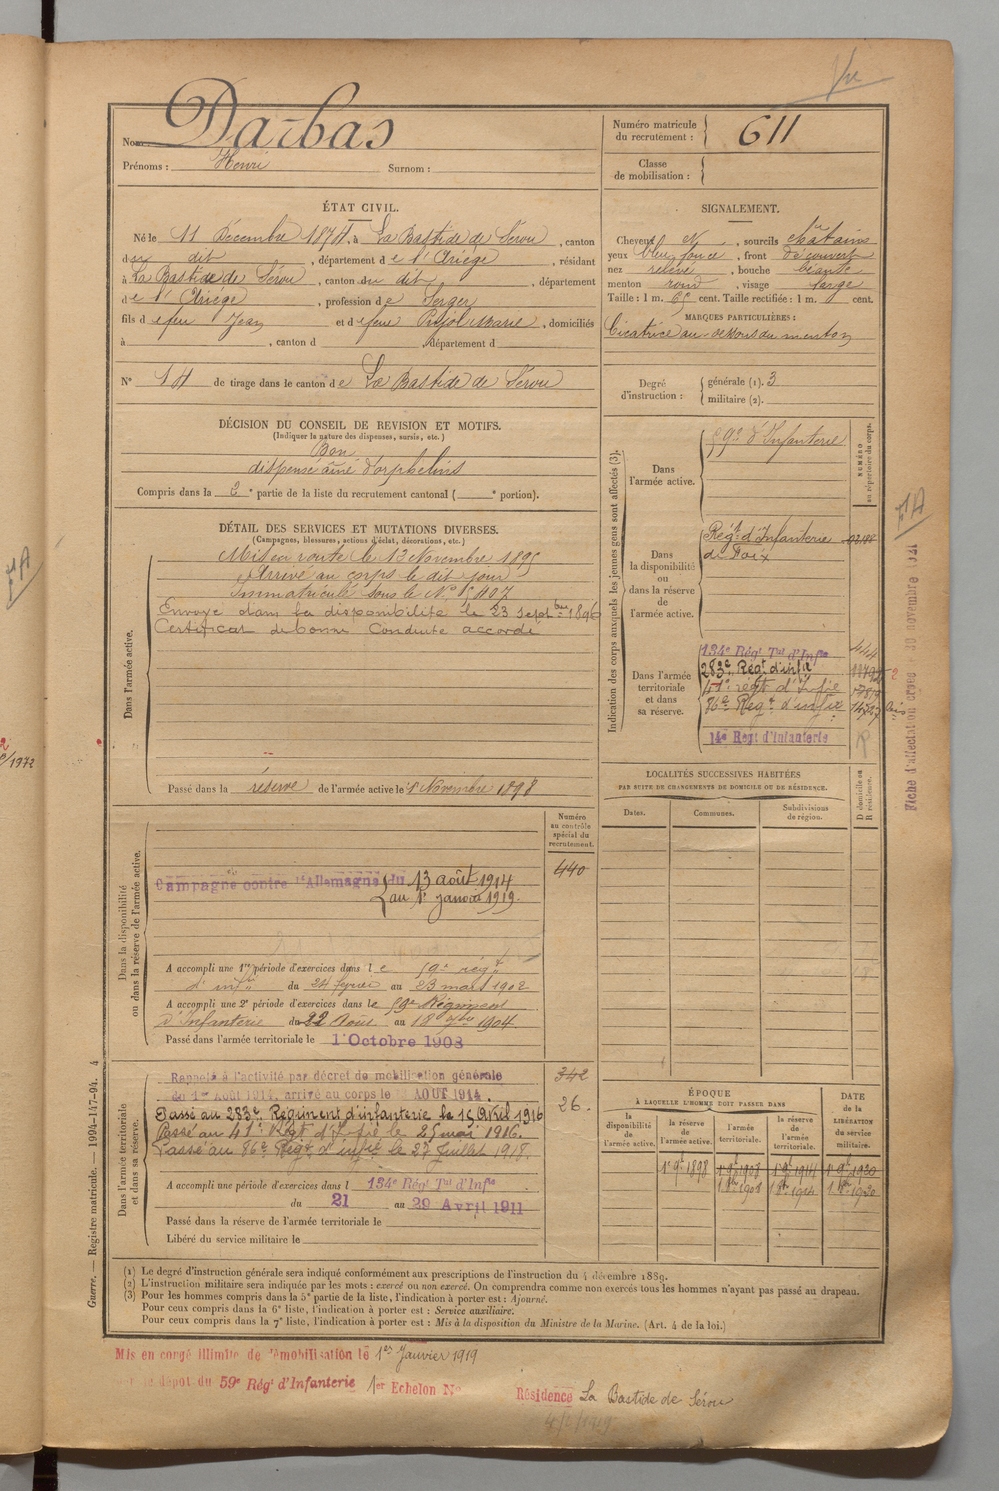 Vu
Nom : Darbas
Prénoms : Henri Surnom :
Numéro matricule
du recrutement : 611
Classe
de mobilisation :
ÉTAT CIVIL.
Né le 11 Décembre 1874, à La Bastide de Sérou, canton
du dit, département de l'Ariége, résidant
à La Bastide de Sérou, canton du dit, département
de l'Ariége, profession de
fils d efeu Jean et d efeue Pujol Marie, domiciliés
à , canton d , département d
N° 14 de tirage dans le canton de La Bastide de Sérou
SIGNALEMENT.
Cheveux N, sourcils châtains
yeux bleu foncé, front découvert
nez relevé, bouche béante
menton rond, visage large
Taille : 1 m. 65 cent. Taille rectifiée : 1 m. cent.
MARQUES PARTICULIÈRES :
Cicatrice au-dessous du menton
Degré
d'instruction :
générale (1). 3
militaire (2).
DÉCISION DU CONSEIL DE REVISION ET MOTIFS.
(Indiquer la nature des dispenses, sursis, etc.)
Bon
dispensé ainé d'orphelins
Compris dans la 2e partie de la liste du recrutement cantonal ( e portion).
DÉTAIL DES SERVICES ET MUTATIONS DIVERSES.
(Campagnes, blessures, actions d'éclat, décorations, etc.)
Dans l'armée active.
Mis en route le 13 Novembre 1895
Arrivé au corps le dit jour
Immatriculé sous le N° 5407
Envoyé dans la disponibilité le 23 Septbre 1896
Certificat de bonne Conduite accordé
Passé dans la réserve de l'armée active le 1 Novembre 1898
Indication des corps auxquels les jeunes gens sont affectés (3).
NUMÉRO
au répertoire du corps.
Dans
l'armée active.
59e d'Infanterie
Dans
la disponibilité
ou
dans la réserve
de
l'armée active.
Régt d'Infanterie
de Foix
Dans l'armée
territoriale
et dans
sa réserve.
134e Régt Tal d'Infie 444
283e Régt d'infie
41e régt d'Infie
86e Régt d'infie
14e Regt d'Infanterie
FA
FA
Fiche d'affectation 30 novembre 1921
LOCALITÉS SUCCESSIVES HABITÉES
PAR SUITE DE CHANGEMENTS DE DOMICILE OU DE RÉSIDENCE.
Dates.
Communes.
Subdivisions
de région.
D domicile ou
R résidence.
Dans la disponibilité
ou dans la réserve de l'armée active.
Numéro
au contrôle
spécial du
recrutement.
440
Campagne contre l'Allemagne du 13 août 1914
au 1r janvier 1919.
A accompli une 1re période d'exercices dans le 59e régt
d'infie du 24 février au 23 mars 1902
A accompli une 2e période d'exercices dans le 59e Régiment
d'Infanterie du 22 Août au 18 7bre 1904
Passé dans l'armée territoriale le 1 Octobre 1908
Dans l'armée territoriale
et dans sa réserve.
342
26.
Rappelé à l'activité par décret de mobilisation générale
du 1er Août 1914, arrivé au corps le AOUT 1914.
Passé au 283e Régiment d'infanterie le 15 Avril 1916
Passé au 41e Régt d'Infie le 25 mai 1916.
Passé au 86e Régt d'infie le 27 Juillet 1918.
A accompli une période d'exercices dans l 134e Régt Tal d'Infie
du 21 au 29 Avril 1911
Passé dans la réserve de l'armée territoriale le
Libéré du service militaire le
ÉPOQUE
À LAQUELLE L'HOMME DOIT PASSER DANS
la
disponibilité
de
l'armée active.
la réserve
de
l'armée active.
l'armée
territoriale.
la réserve
de
l'armée
territoriale.
DATE
de la
LIBÉRATION
du service
militaire.
1r 9bre 1898 1r 9bre 1908 1r 9bre 1914 1r 9bre 1920
1 8bre 1908 1 8bre 1914 1 8bre 1920
(1) Le degré d'instruction générale sera indiqué conformément aux prescriptions de l'instruction du 4 décembre 1889.
(2) L'instruction militaire sera indiquée par les mots : exercé ou non exercé. On comprendra comme non exercés tous les hommes n'ayant pas passé au drapeau.
(3) Pour les hommes compris dans la 5e partie de la liste, l'indication à porter est : Ajourné.
Pour ceux compris dans la 6e liste, l'indication à porter est : Service auxiliaire.
Pour ceux compris dans la 7e liste, l'indication à porter est : Mis à la disposition du Ministre de la Marine. (Art. 4 de la loi.)
Guerre. — Registre matricule. — 1994-147-94. 4
Mis en congé illimité de démobilisation le 1er Janvier 1919
dépôt du 59e Régt d'Infanterie 1er Echelon N°
Résidence La Bastide de Sérou